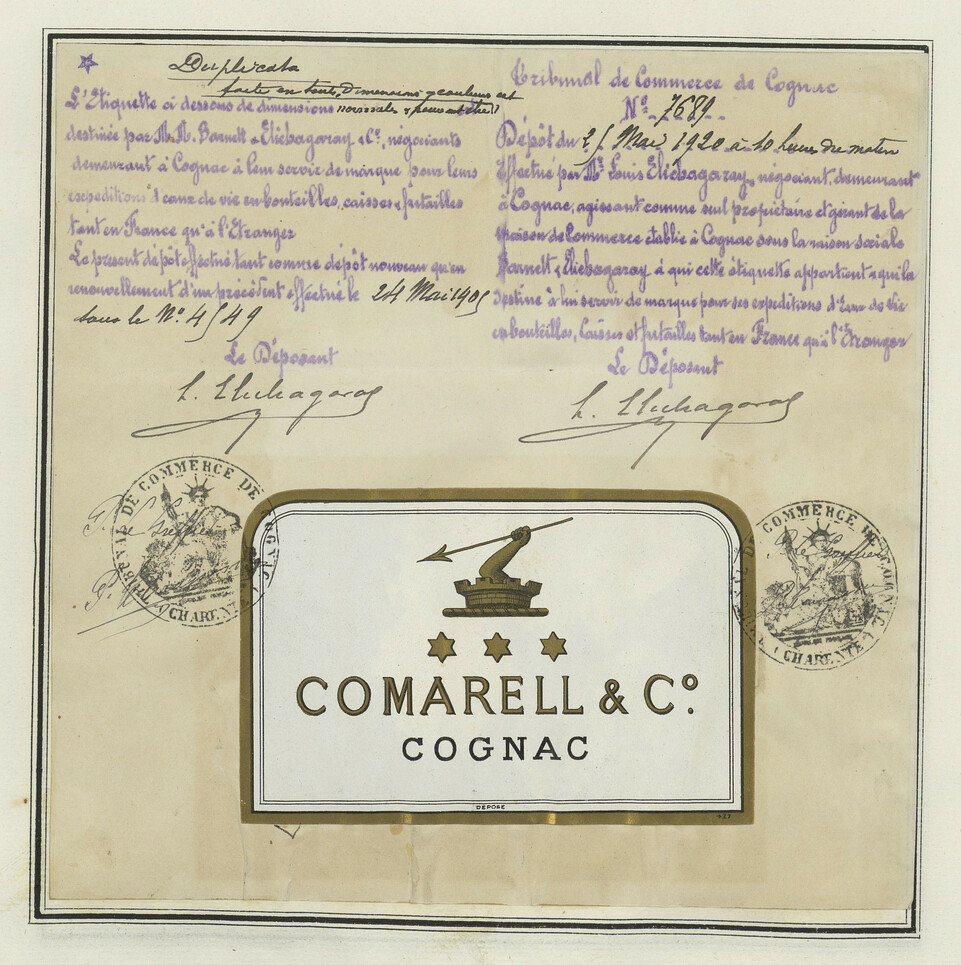 Duplicata
faite en toutes dimensions & couleurs et
L'Etiquette ci dessous de dimensions normales &
destinée par M.M. Barnett & Elichagaray & Cº, négociants
demeurant à Cognac à leur servir de marque pour leurs
expeditions d'eaux de vie en bouteilles, caisses & futailles
tant en France qu'à l'Etranger
Le present dépôt effectué tant comme dépôt nouveau qu'en
renouvellement d'un précédent effectué le 24 Mai 1905
sous le Nº 4549
Le Déposant
L. Elichagaray
Tribunal de Commerce de Cognac
Nº 7689
Dépôt du Mai 1920 à 10 heures du matin
Effectué par Mr Louis Elichagaray, négociant, demeurant
à Cognac, agissant comme seul propriétaire et gérant de la
Maison de Commerce établie à Cognac sous la raison sociale
Barnett & Elichagaray à qui cette étiquette appartient & qui la
destine à lui servir de marque pour ses expeditions d'Eaux de Vie
en bouteilles, Caisses et futailles tant en France qu'à l'Etranger
Le Déposant
L. Elichagaray
TRIBUNAL DE COMMERCE DE COGNAC
(CHARENTE)
TRIBUNAL DE COMMERCE DE COGNAC
(CHARENTE)
COMARELL & Cº.
COGNAC
DÉPOSÉ
427